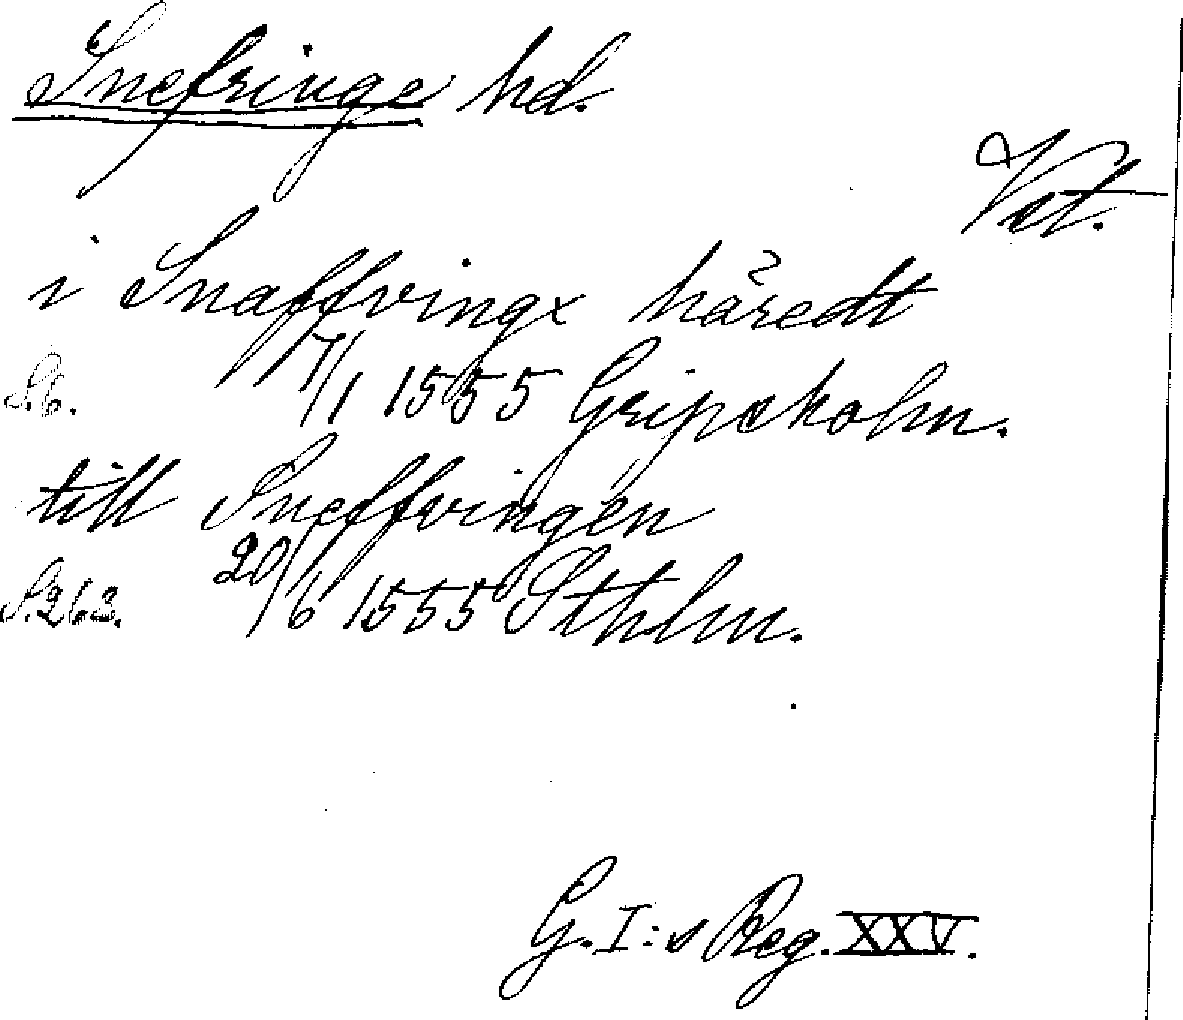 Snefringe hd.
Vst.
i Snaffvinge häredt
S. 6. 17/1 1555 Gripsholm.
till Sneffvingen
S. 263. 20/6 1555 Sthlm.
G. I:s Reg. XXV.